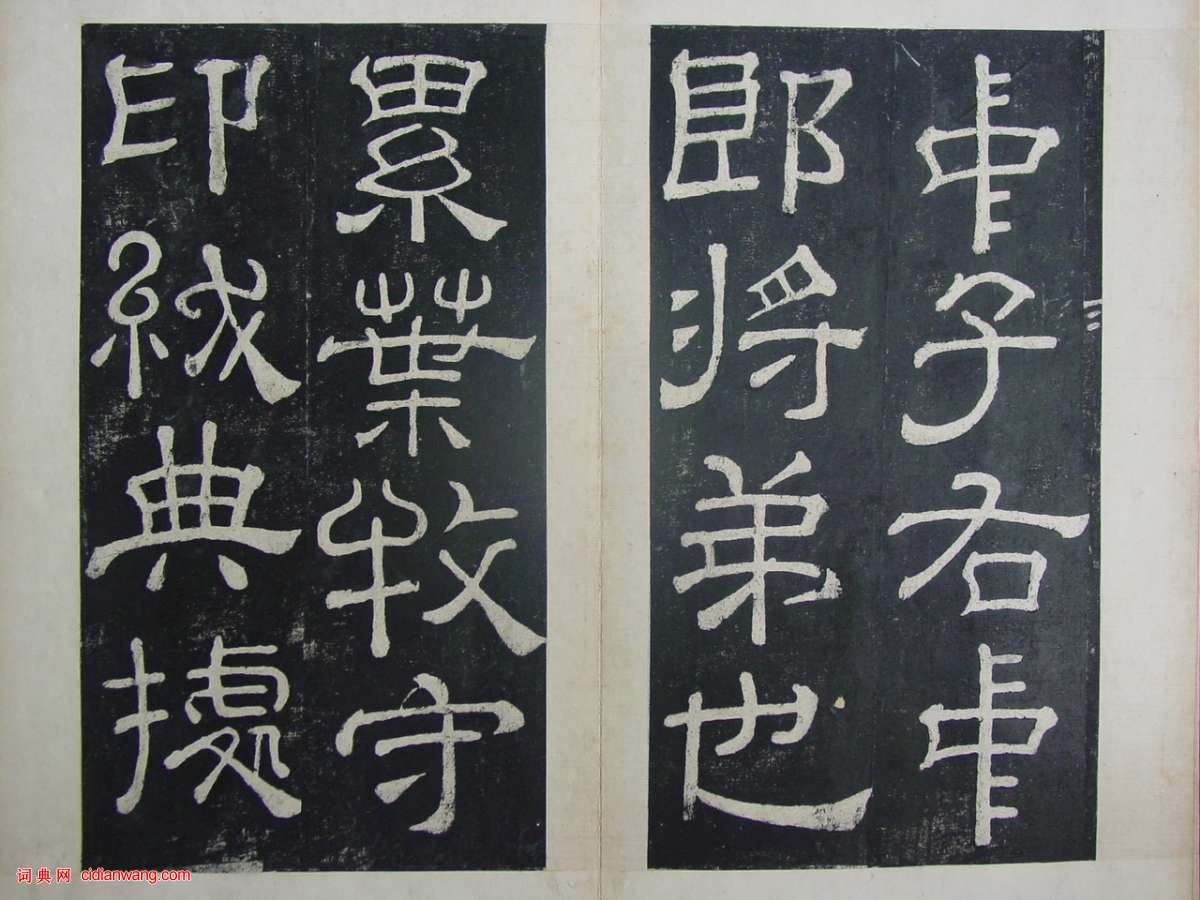 中子右中
郎將弟也
累葉牧守
印紱典據
词典网 cidianwang.com